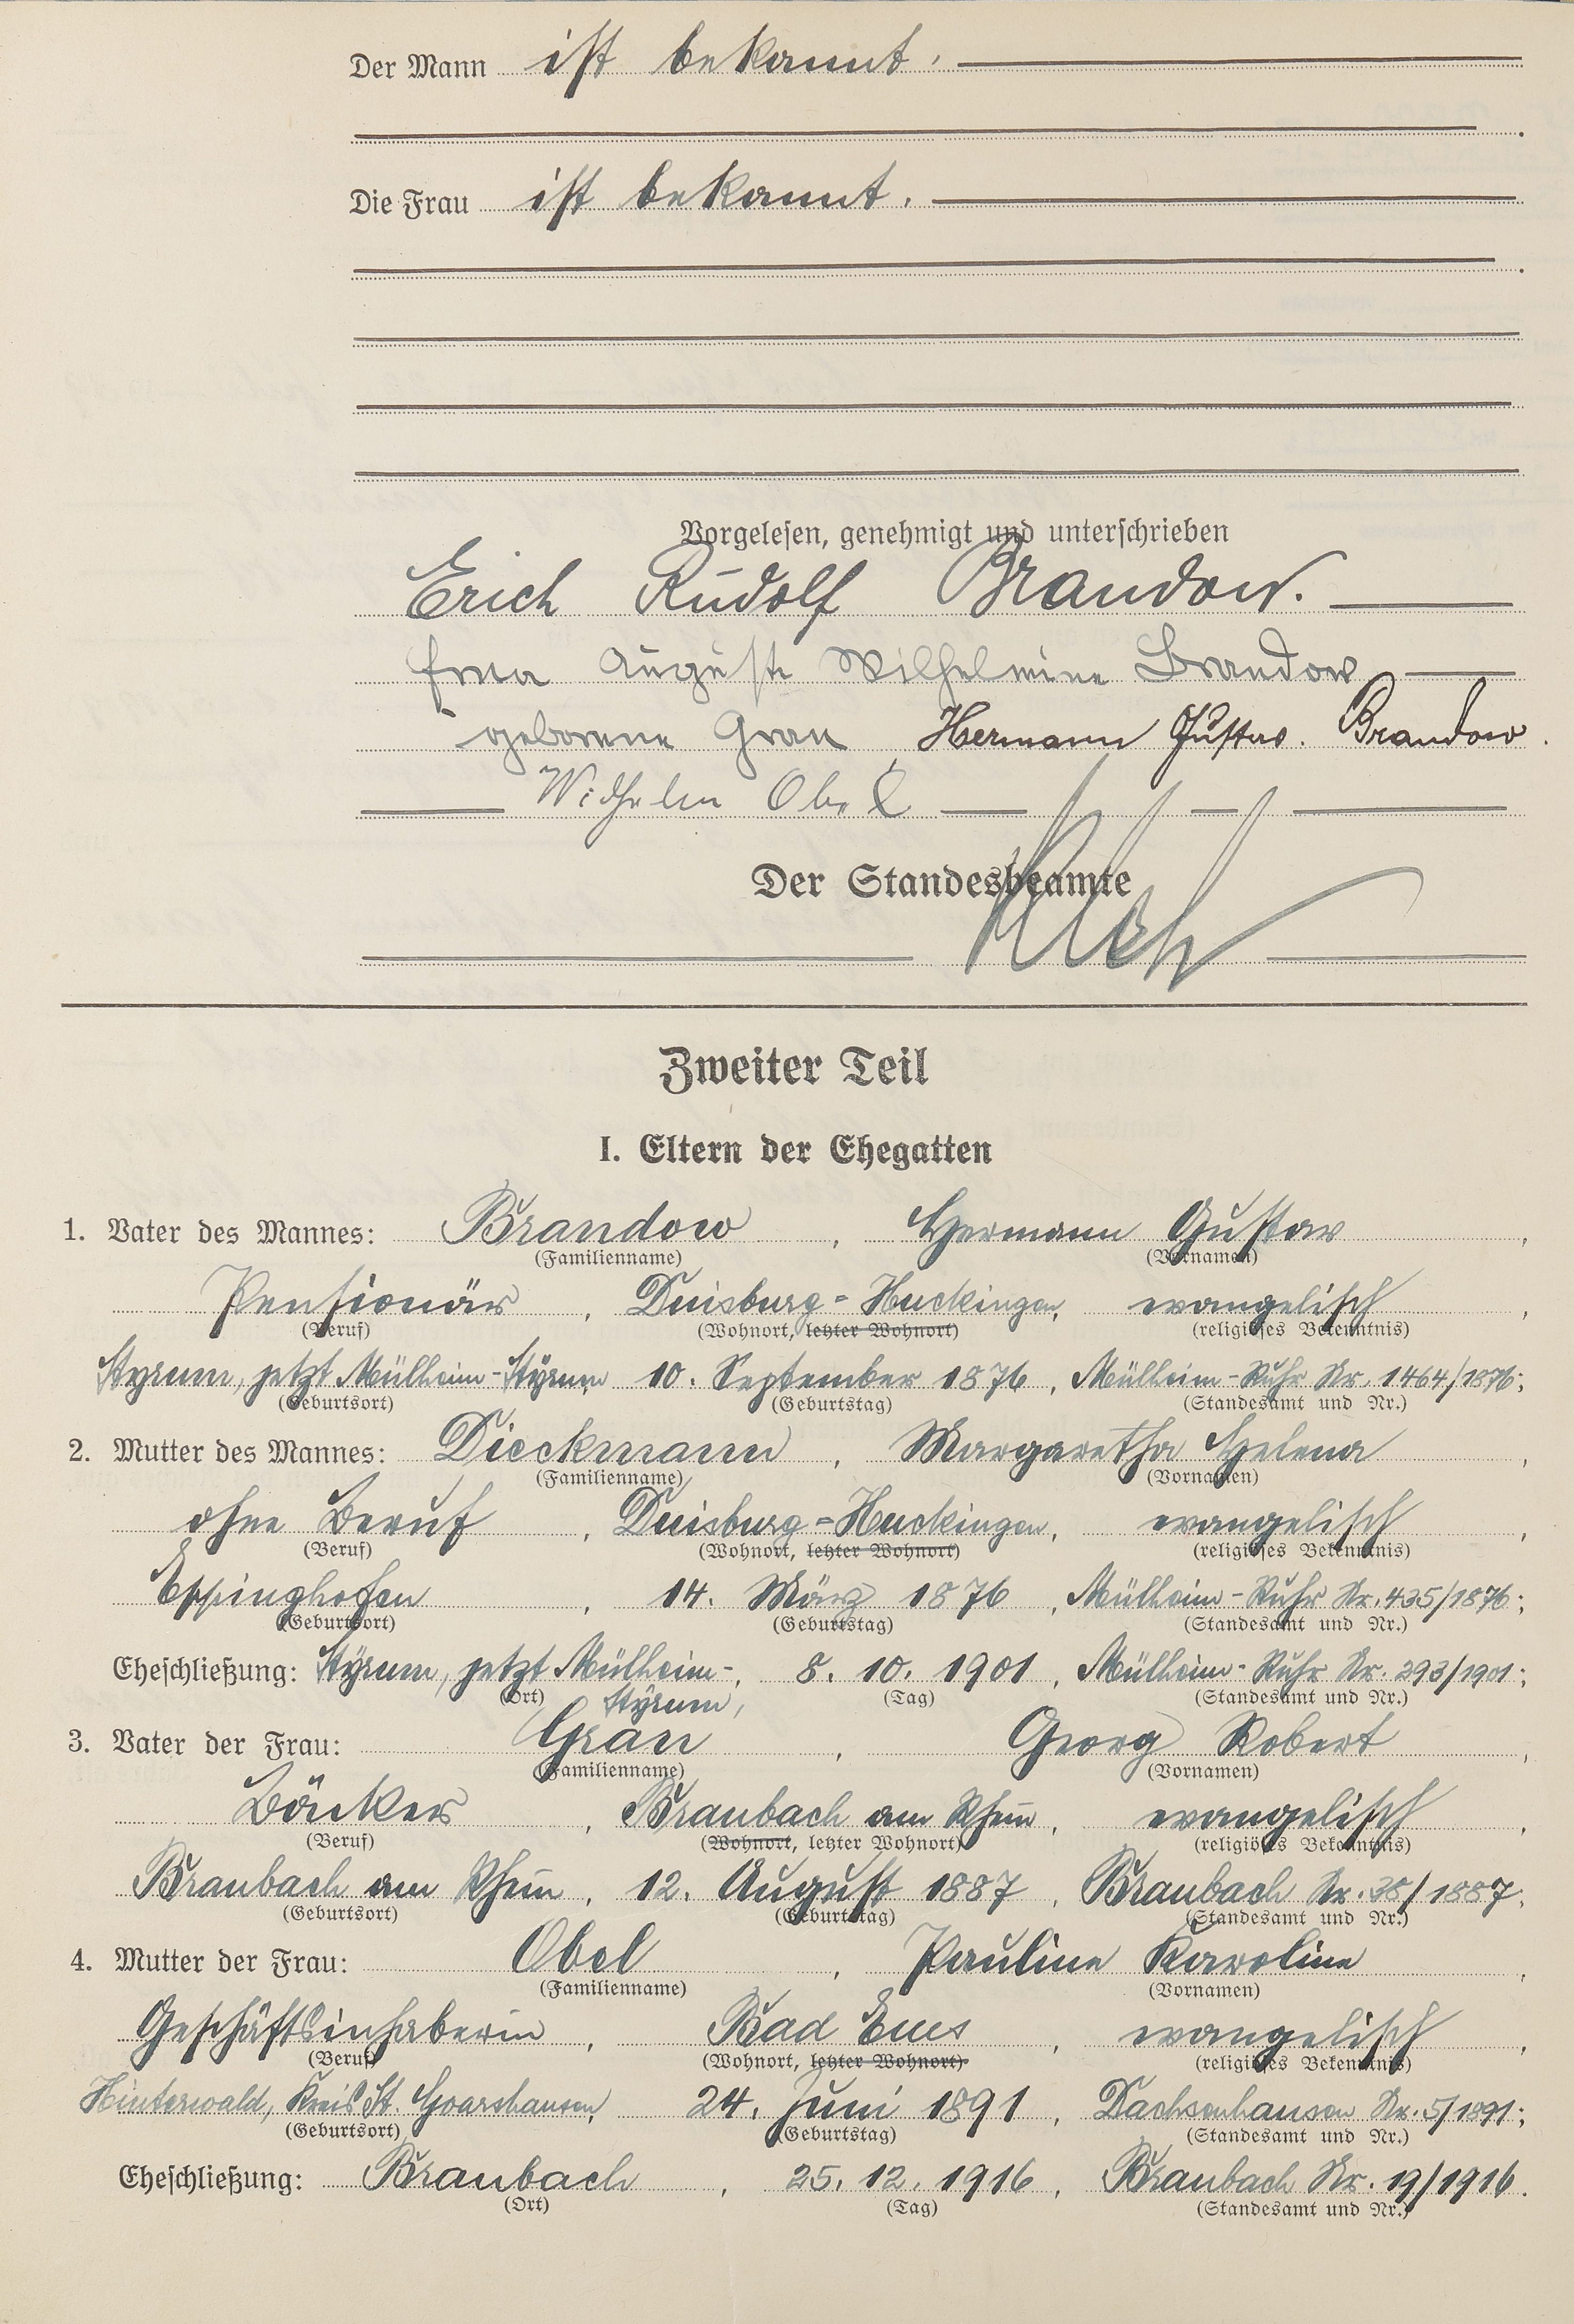 Der Mann ist bekannt.
Die Frau ist bekannt.
Vorgelesen, genehmigt und unterschrieben
Erich Rudolf Brandow.
Erna Auguste Wilhelmine Brandow
geborene Gran, Hermann Gustav. Brandow.
Wilhelm Obel
Der Standesbeamte
Zweiter Teil
I. Eltern der Ehegatten
1. Vater des Mannes: Brandow, Hermann Gustav,
(Familienname) (Vornamen)
Pensionär, Duisburg-Huckingen, evangelisch,
(Beruf) (Wohnort, letzter Wohnort) (religiöses Bekenntnis)
Styrum, jetzt Mülheim-Styrum, 10. September 1876, Mülheim-Ruhr Nr. 1464/1876;
(Geburtsort) (Geburtstag) (Standesamt und Nr.)
2. Mutter des Mannes: Dieckmann, Margaretha Helena,
(Familienname) (Vornamen)
ohne Beruf, Duisburg-Huckingen, evangelisch,
(Beruf) (Wohnort, letzter Wohnort) (religiöses Bekenntnis)
Eppinghofen, 14. März 1876, Mülheim-Ruhr Nr. 435/1876;
(Geburtsort) (Geburtstag) (Standesamt und Nr.)
Eheschließung: Styrum, jetzt Mülheim-, 8. 10. 1901, Mülheim-Ruhr Nr. 293/1901;
(Ort) Styrum, (Tag) (Standesamt und Nr.)
3. Vater der Frau: Gran, Georg Robert,
(Familienname) (Vornamen)
Bäcker, Braubach am Rhein, evangelisch,
(Beruf) (Wohnort, letzter Wohnort) (religiöses Bekenntnis)
Braubach am Rhein, 12. August 1887, Braubach Nr. 38/1887;
(Geburtsort) (Geburtstag) (Standesamt und Nr.)
4. Mutter der Frau: Obel, Pauline Karoline,
(Familienname) (Vornamen)
Geschäftsinhaberin, Bad Ems, evangelisch,
(Beruf) (Wohnort, letzter Wohnort) (religiöses Bekenntnis)
Hinterwald, Kreis St. Goarshausen, 24. Juni 1891, Dachsenhausen Nr. 5/1891;
(Geburtsort) (Geburtstag) (Standesamt und Nr.)
Eheschließung: Braubach, 25. 12. 1916, Braubach Nr. 19/1916.
(Ort) (Tag) (Standesamt und Nr.)